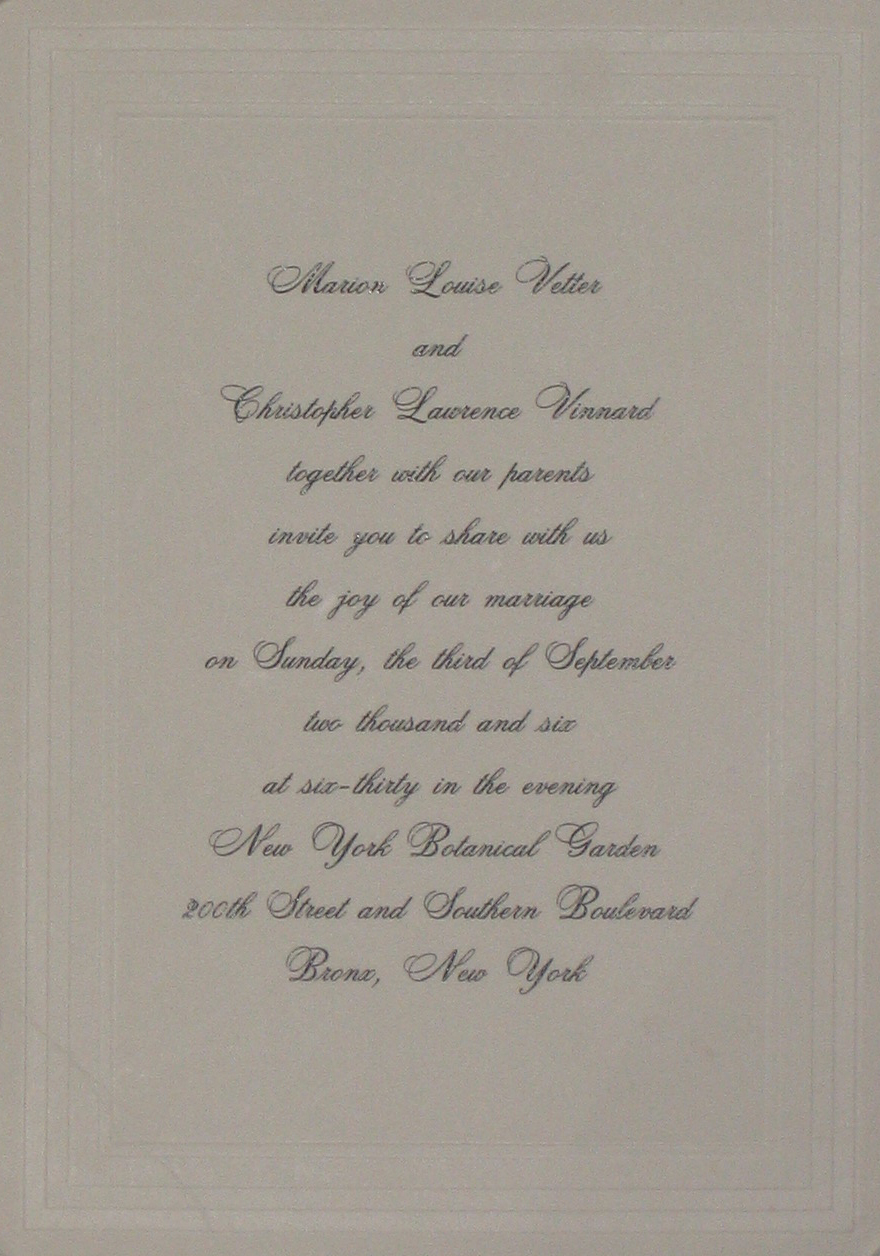 Marion Louise Vetter
and
Christopher Lawrence Vinnard
together with our parents
invite you to share with us
the joy of our marriage
on Sunday, the third of September
two thousand and six
at six-thirty in the evening
New York Botanical Garden
200th Street and Southern Boulevard
Bronx, New York